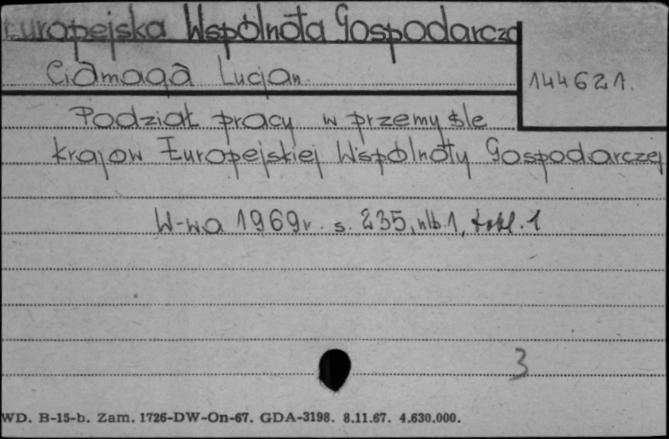 Europejska Wspólnota Gospodarcza
Ciamaga Lucjan
144621.
Podział pracy w przemyśle
krajow Europejskiej Wspólnoty Gospodarczej
W-wa 1969r. s. 235, nlb. 1, tabl. 1
3
WD. B-15-b. Zam. 1726-DW-On-67. GDA-3198. 8.11.67. 4.630.000.